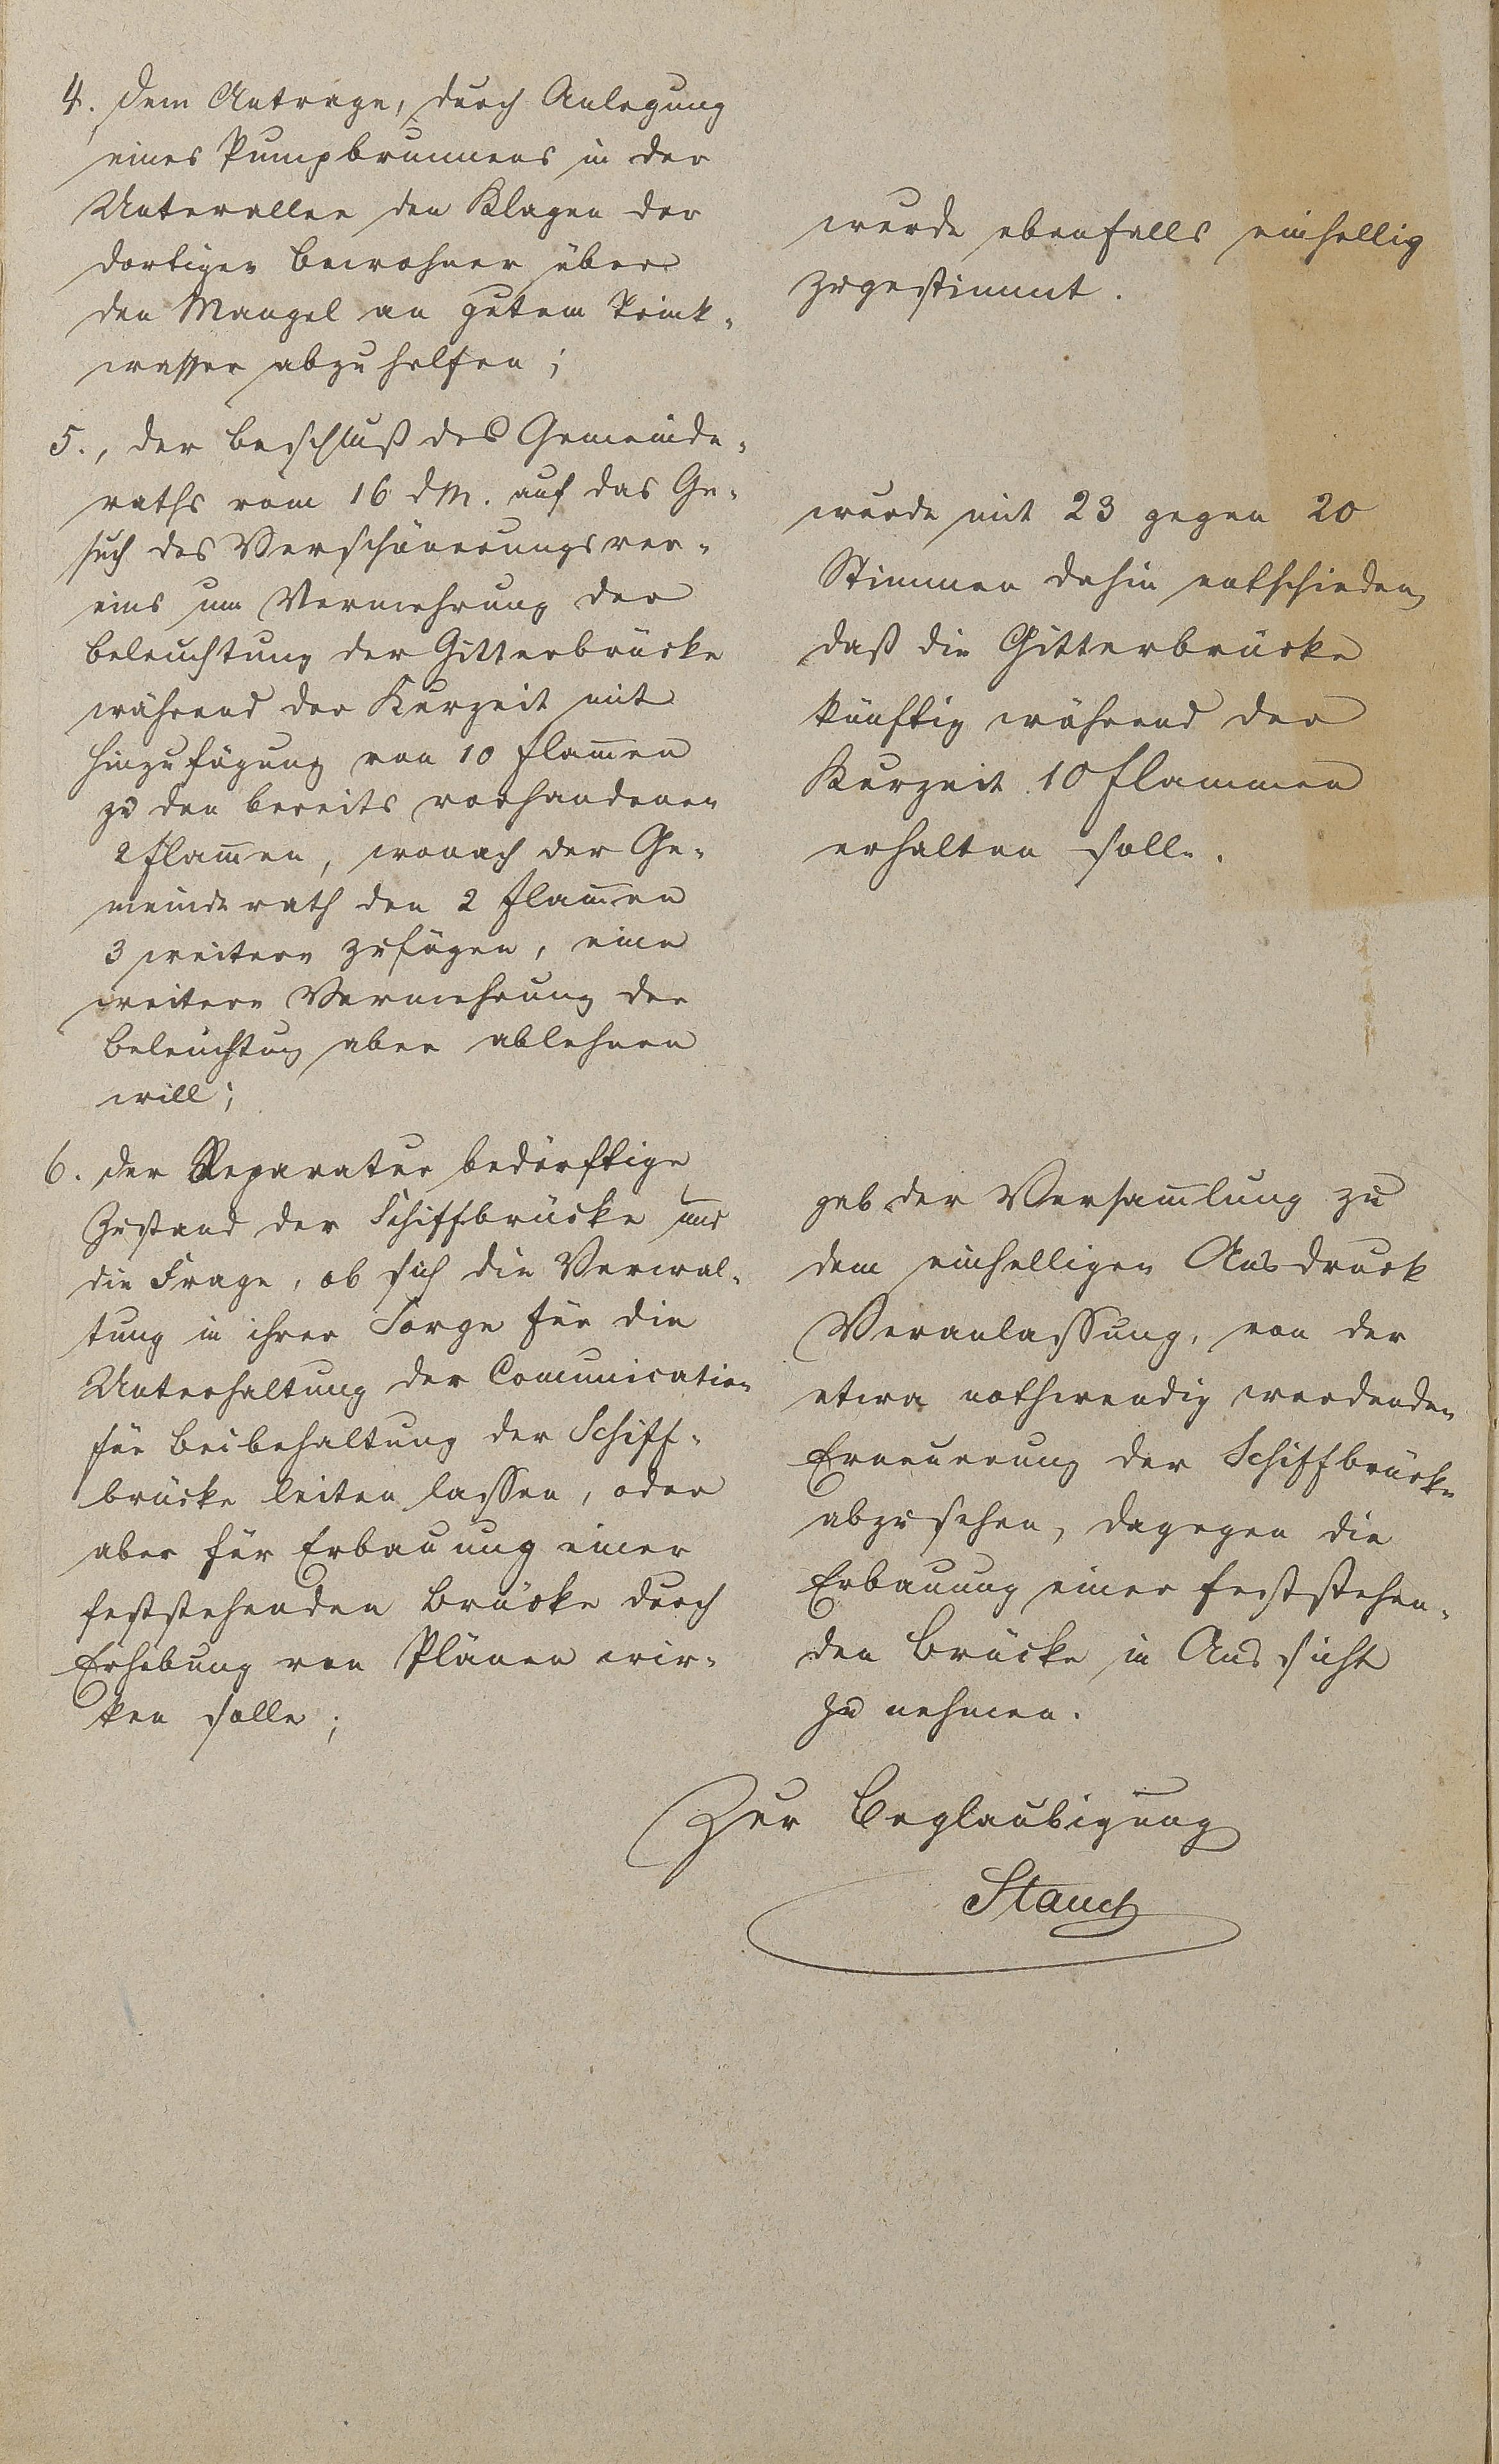 4. dem Antrage, durch Anlegung
eines Pumpbrunnens in der
Unterallee den Klagen der
dortigen Bewohner über
den Mangel an gutem Trink-
wasser abzuhelfen;
wurde ebenfalls einhellig
zugestimmt.
5., der Beschluß des Gemeinde-
raths vom 16 d M. auf das Ge-
such des Verschönerungsver-
eins um Vermehrung der
Beleuchtung der Gitterbrücke
während der Kurzeit mit
Hinzufügung von 10 Flam̅en
zu den bereits vorhandenen
2 Flam̅en, wonach der Ge-
meinderath den 2 Flam̅en
3 weitere zufügen, eine
weitere Vermehrung der
Beleuchtung aber ablehnen
will;
wurde mit 23 gegen 20
Stimmen dahin entschieden,
daß die Gitterbrücke
künftig während der
Kurzeit 10 Flammen
erhalten solle.
6. der Reparatur bedürftige
Zustand der Schiffbrücke und
die Frage, ob sich die Verwal-
tung in ihrer Sorge für die
Unterhaltung der Com̅unication
für Beibehaltung der Schiff-
brücke leiten lassen, oder
aber für Erbauung einer
feststehenden Brücke durch
Erhebung von Plänen wir-
ken solle;
gab der Versam̅lung zu
dem einhelligen Ausdruck
Veranlassung, von der
etwa nothwendig werdenden
Erneuerung der Schiffbrücke
abzusehen, dagegen die
Erbauung einer feststehen-
den Brücke in Aussicht
zu nehmen.
Zur Beglaubigung
Stauch